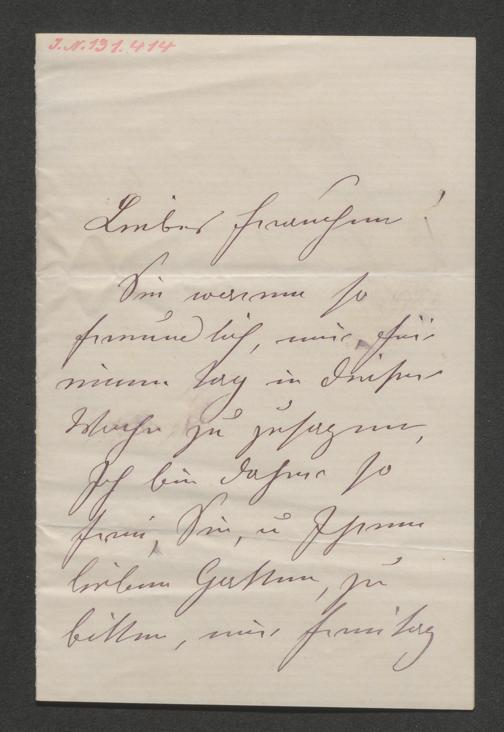 J.N. 131.414
Liebes Frauchen!
Sie waren so
freundlich, mir für
einen Tag in dieser
Woche zu zusagen,
Ich bin daher so
frei, Sie, u Ihren
lieben Gatten, zu
bitten, mir Freitag